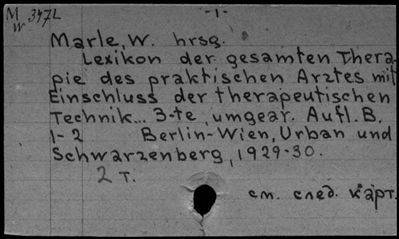 -1-
M 347L
W
Marle, W. hrsg.
Lexikon der gesamten Thera-
pie des praktischen Arztes mit
Einschluss der therapeutischen
Technik... 3-te, umgear. Aufl. B.
1-2 Berlin-Wien, Urban und
Schwarzenberg, 1929-30.
2 т.
см. след. карт.